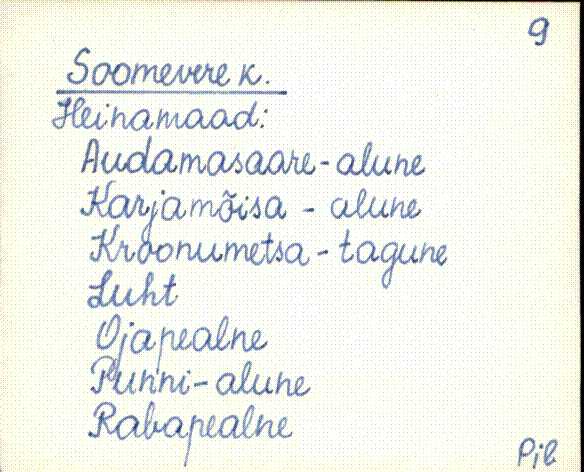 9
Soomevere k.
Heinamaad:
Audamasaare-alune
Karjamõisa - alune
Kroonumetsa-tagune
Luht
Ojapealne
Punni-alune
Rabapealne
Pil